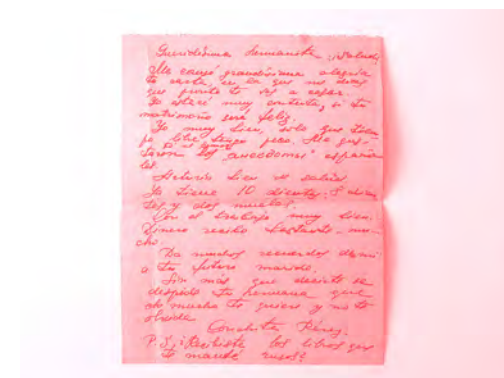 Queridísima hermanita: ¡Salud!
Me causó grandísima alegría
tu carta, en la que me dices
que pronto te vas a casar.
Yo estaré muy contenta, si tu
matrimonio será feliz.
Yo muy bien, solo que
peso. Me gus-
taron los "anecdomas" españo
les
Arturín bien de salud.
Ya tiene 10 dientes: 8 dien
tes y dos muelas.
Con el trabajo muy bien.
Dinero recibo bastante - mu-
cho.
Da muchos recuerdos de mi
a tu futuro marido.
Sin más que decirte se
despide tu hermana que
mucho te quiere y no te
olvida
Conchita Pérez.
P.S. ¡Recibiste los libros que
te mandé rusos?